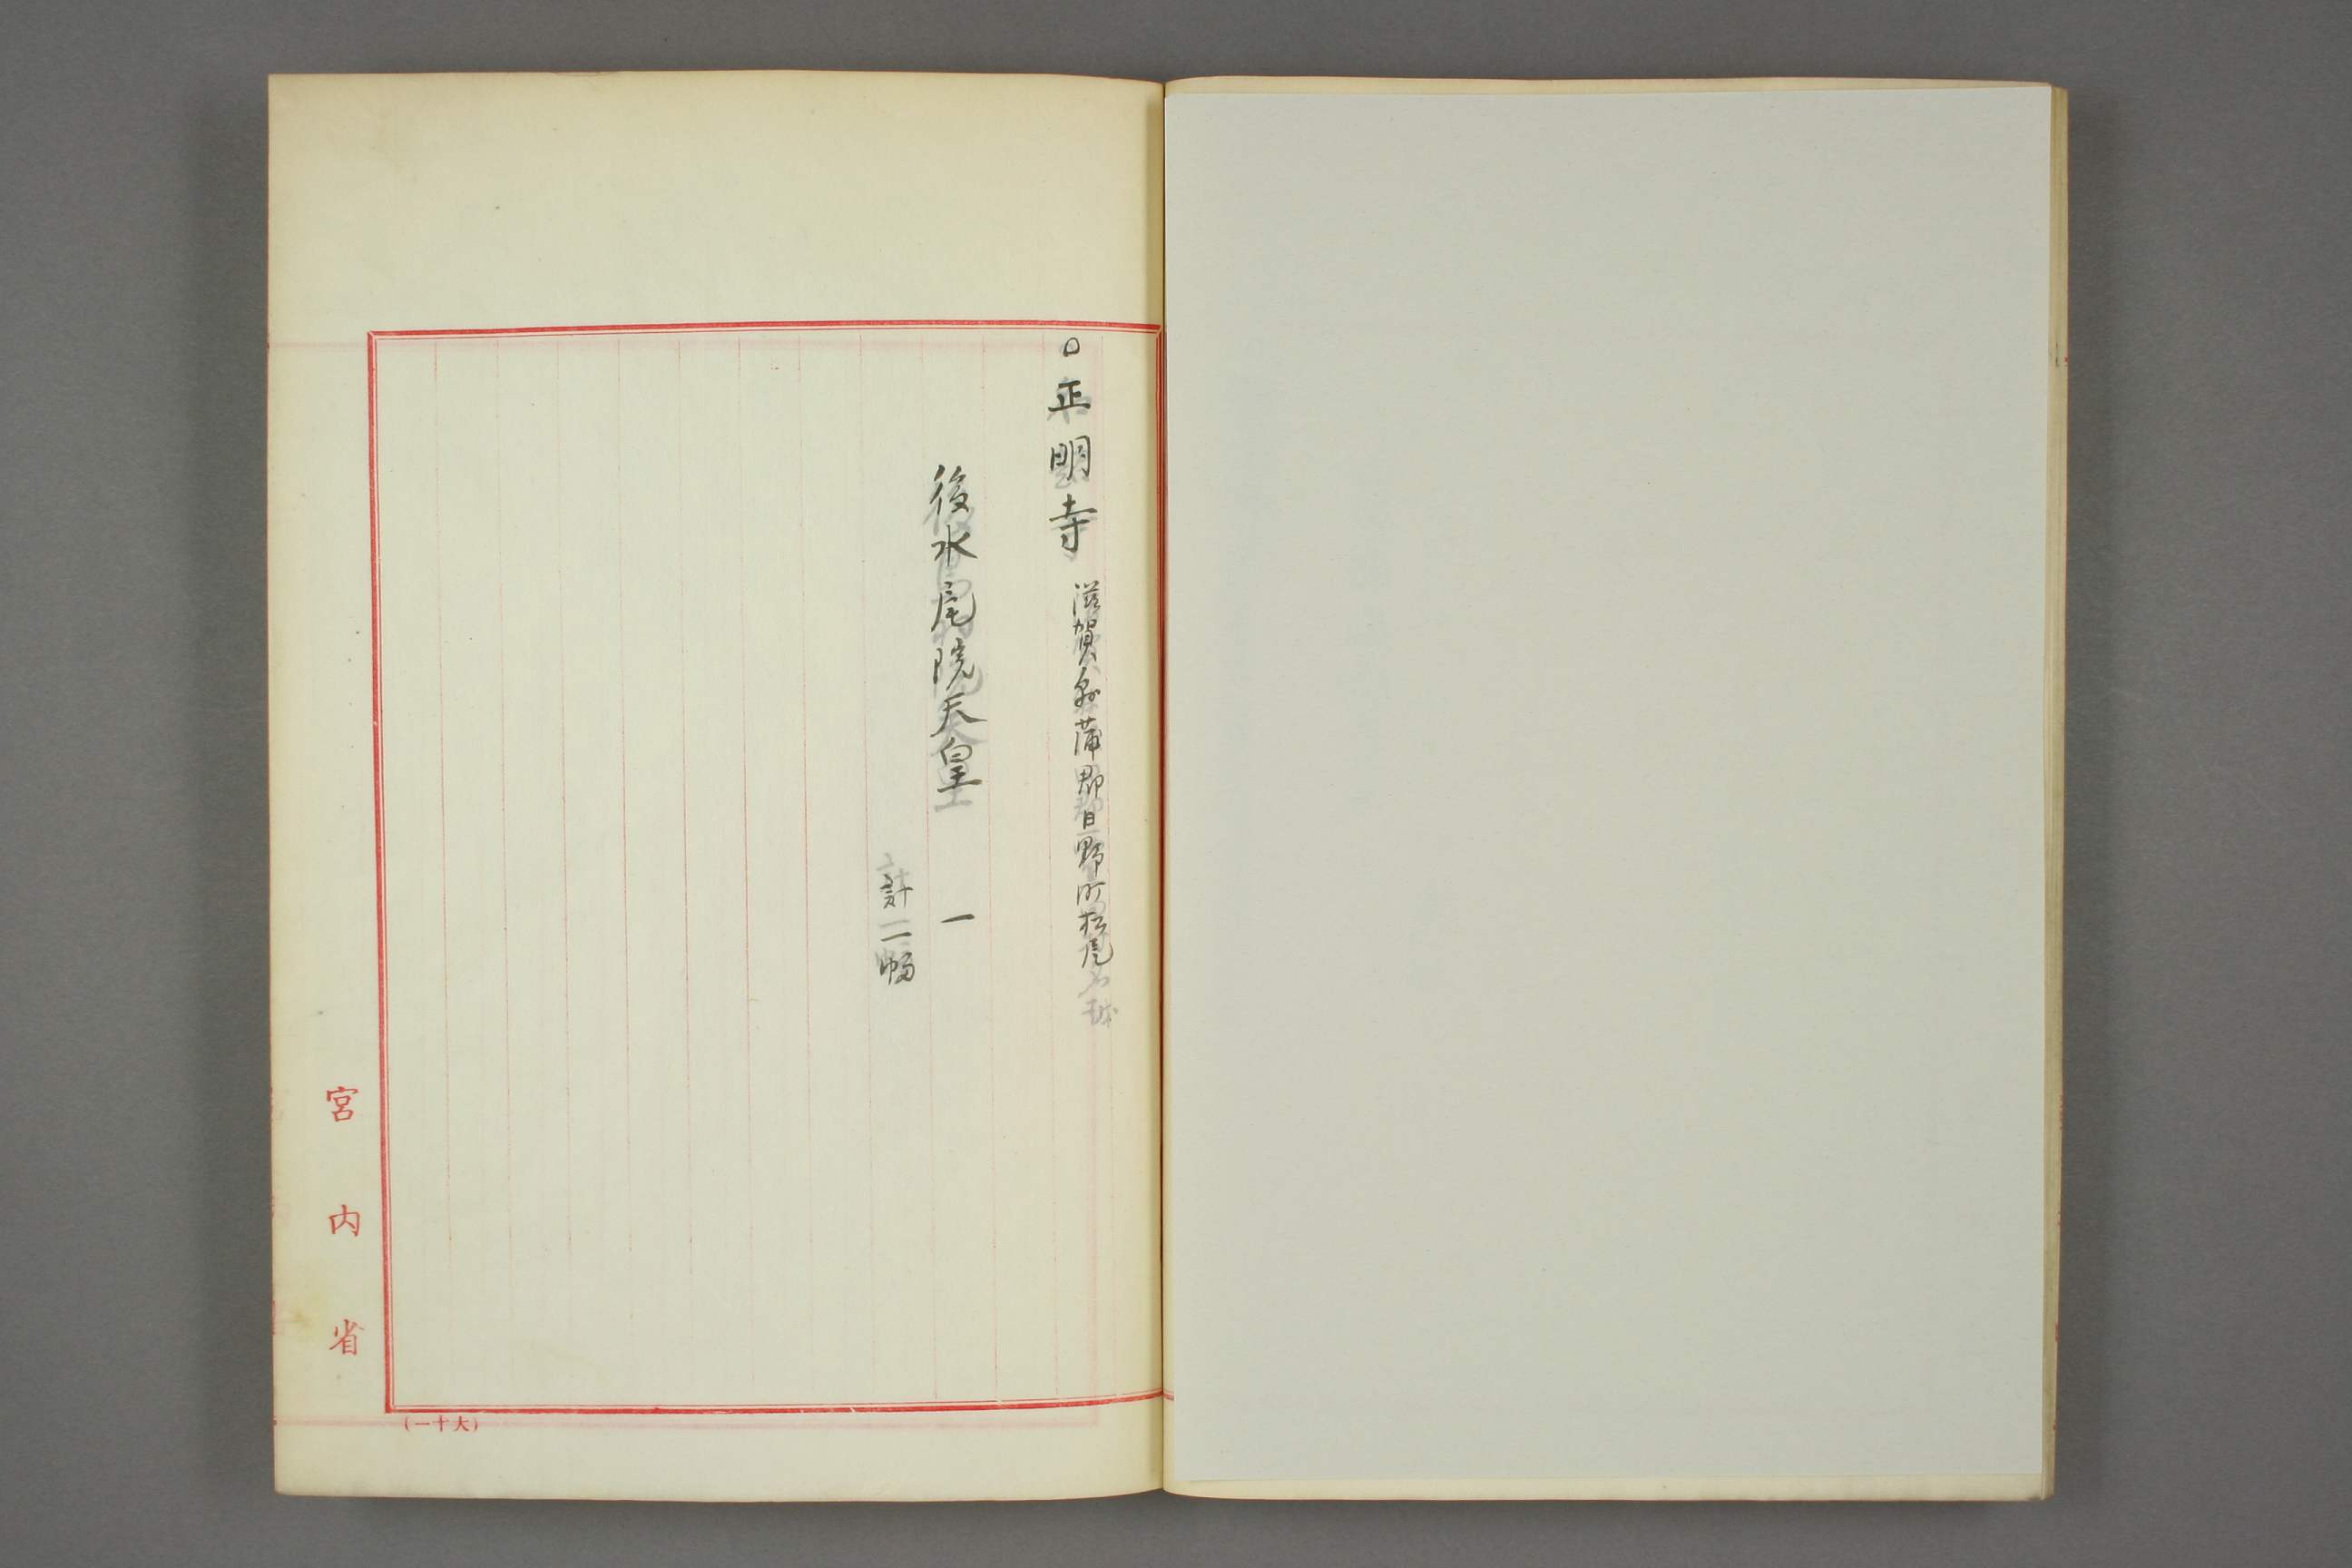 ○正明寺 滋賀縣蒲郡日野町松尾
後水尾院天皇 一
計一幅
宮内省
(一十大)